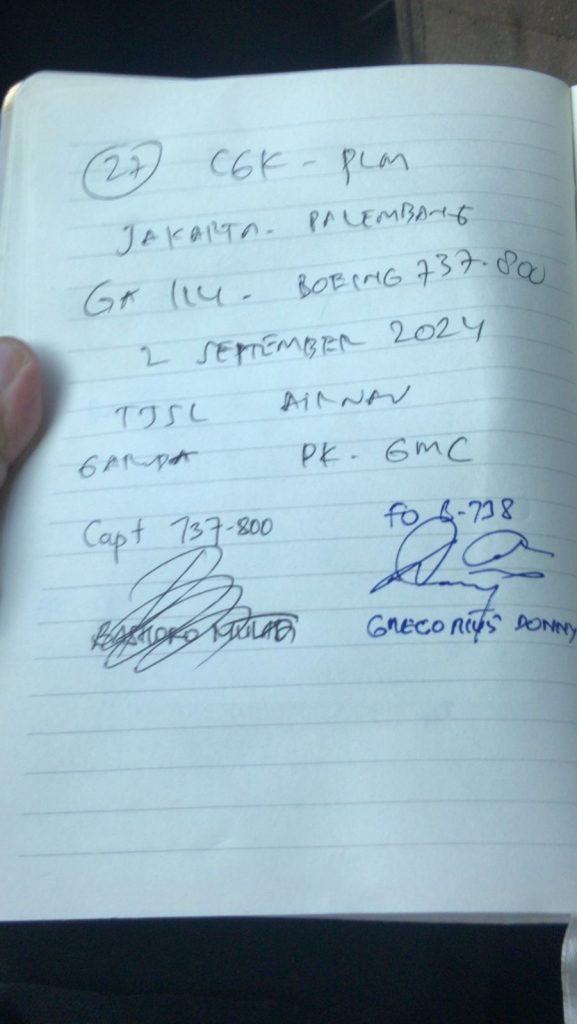 27 CGK - PLM
JAKARTA - PALEMBANG
GA 114 - BOEING 737-800
2 SEPTEMBER 2024
TJSL AIRNAV
GARUDA PK - GMC
Capt 737-800 FO B-738
GREGORIUS DONNY